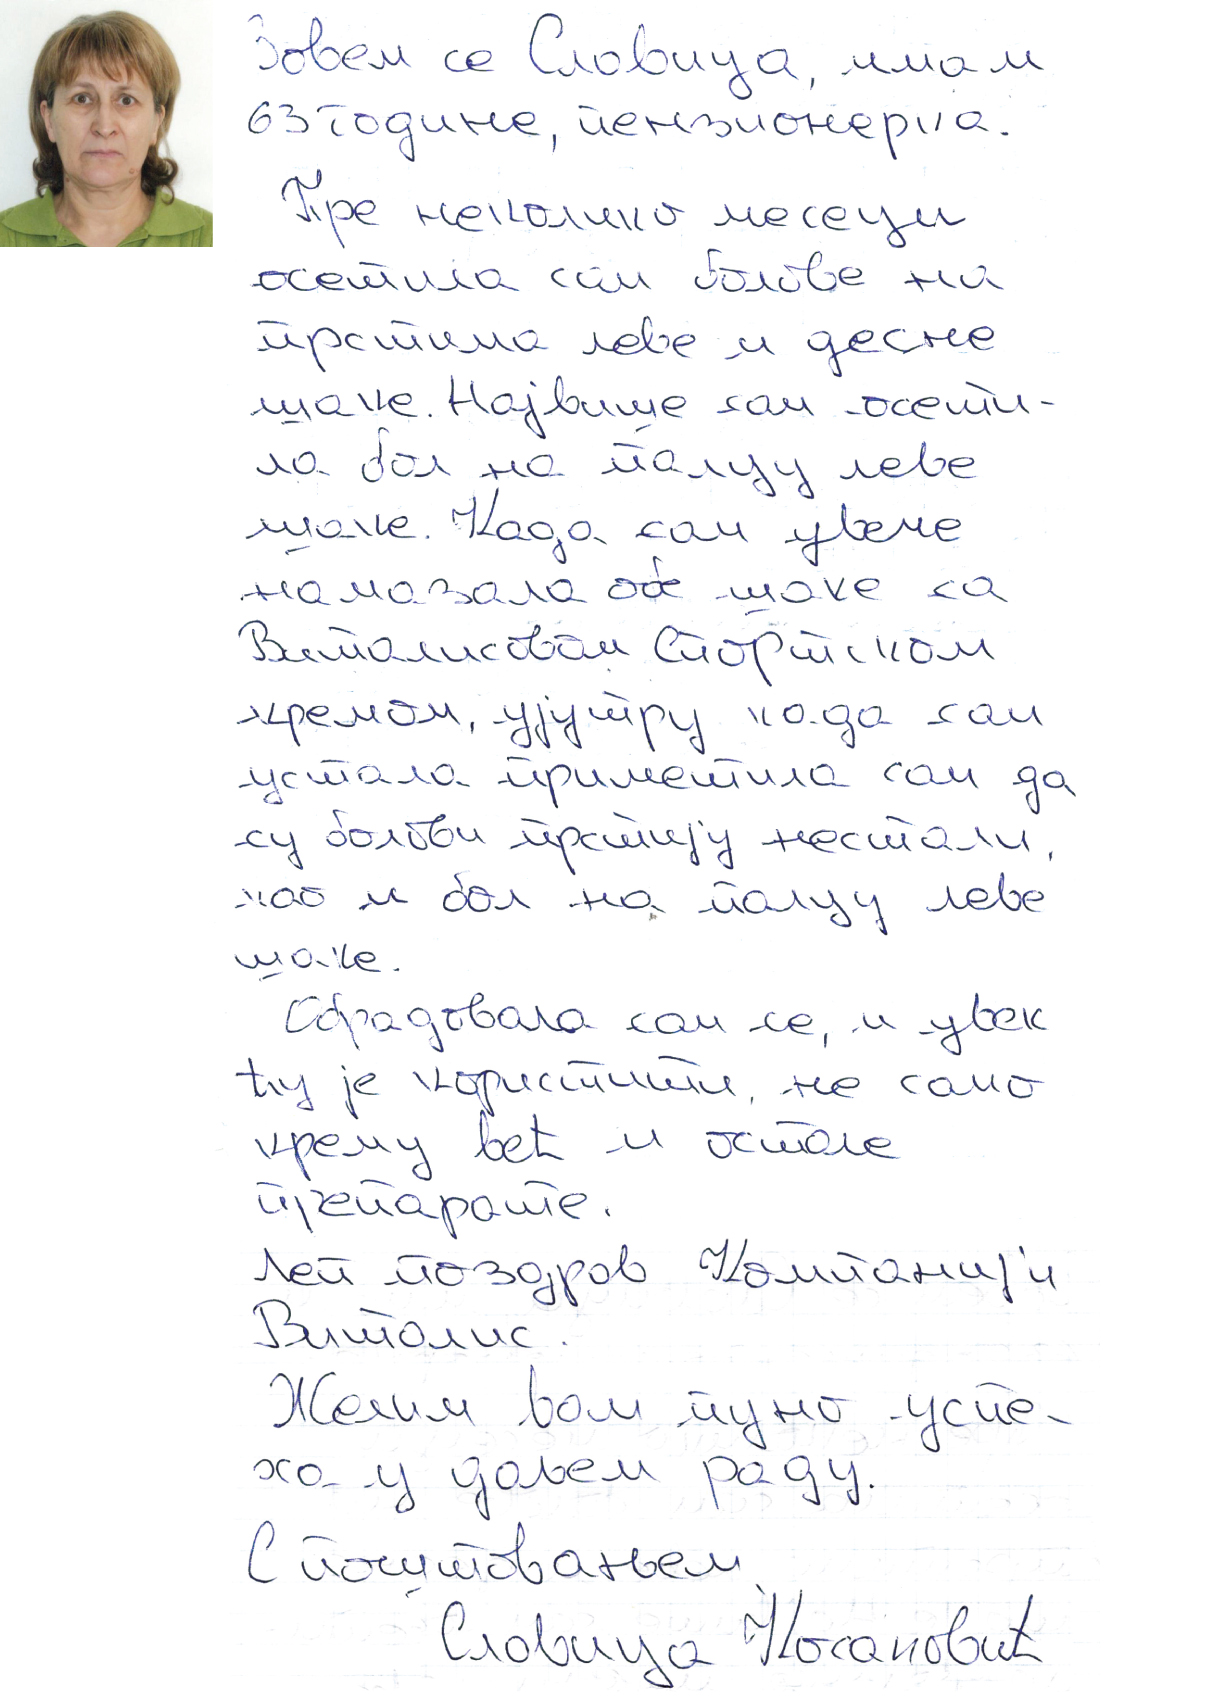 Зовем се Славица, имам
63 године, пензионерка.
Пре неколико месеци
осетила сам болове на
прстима леве и десне
шаке. Највише сам осети-
ла бол на палцу леве
шаке. Када сам увече
намазала обе шаке са
Виталисовом Спортском
кремом, ујутру када сам
устала приметила сам да
су болови прстију нестали,
као и бол на палцу леве
шаке.
Обрадовала сам се, и увек
ћу је користити, не само
крему већ и остале
препарате.
Леп поздрав Компанији
Виталис.
Желим вам пуно успе-
ха у даљем раду.
С поштовањем
Славица Косановић